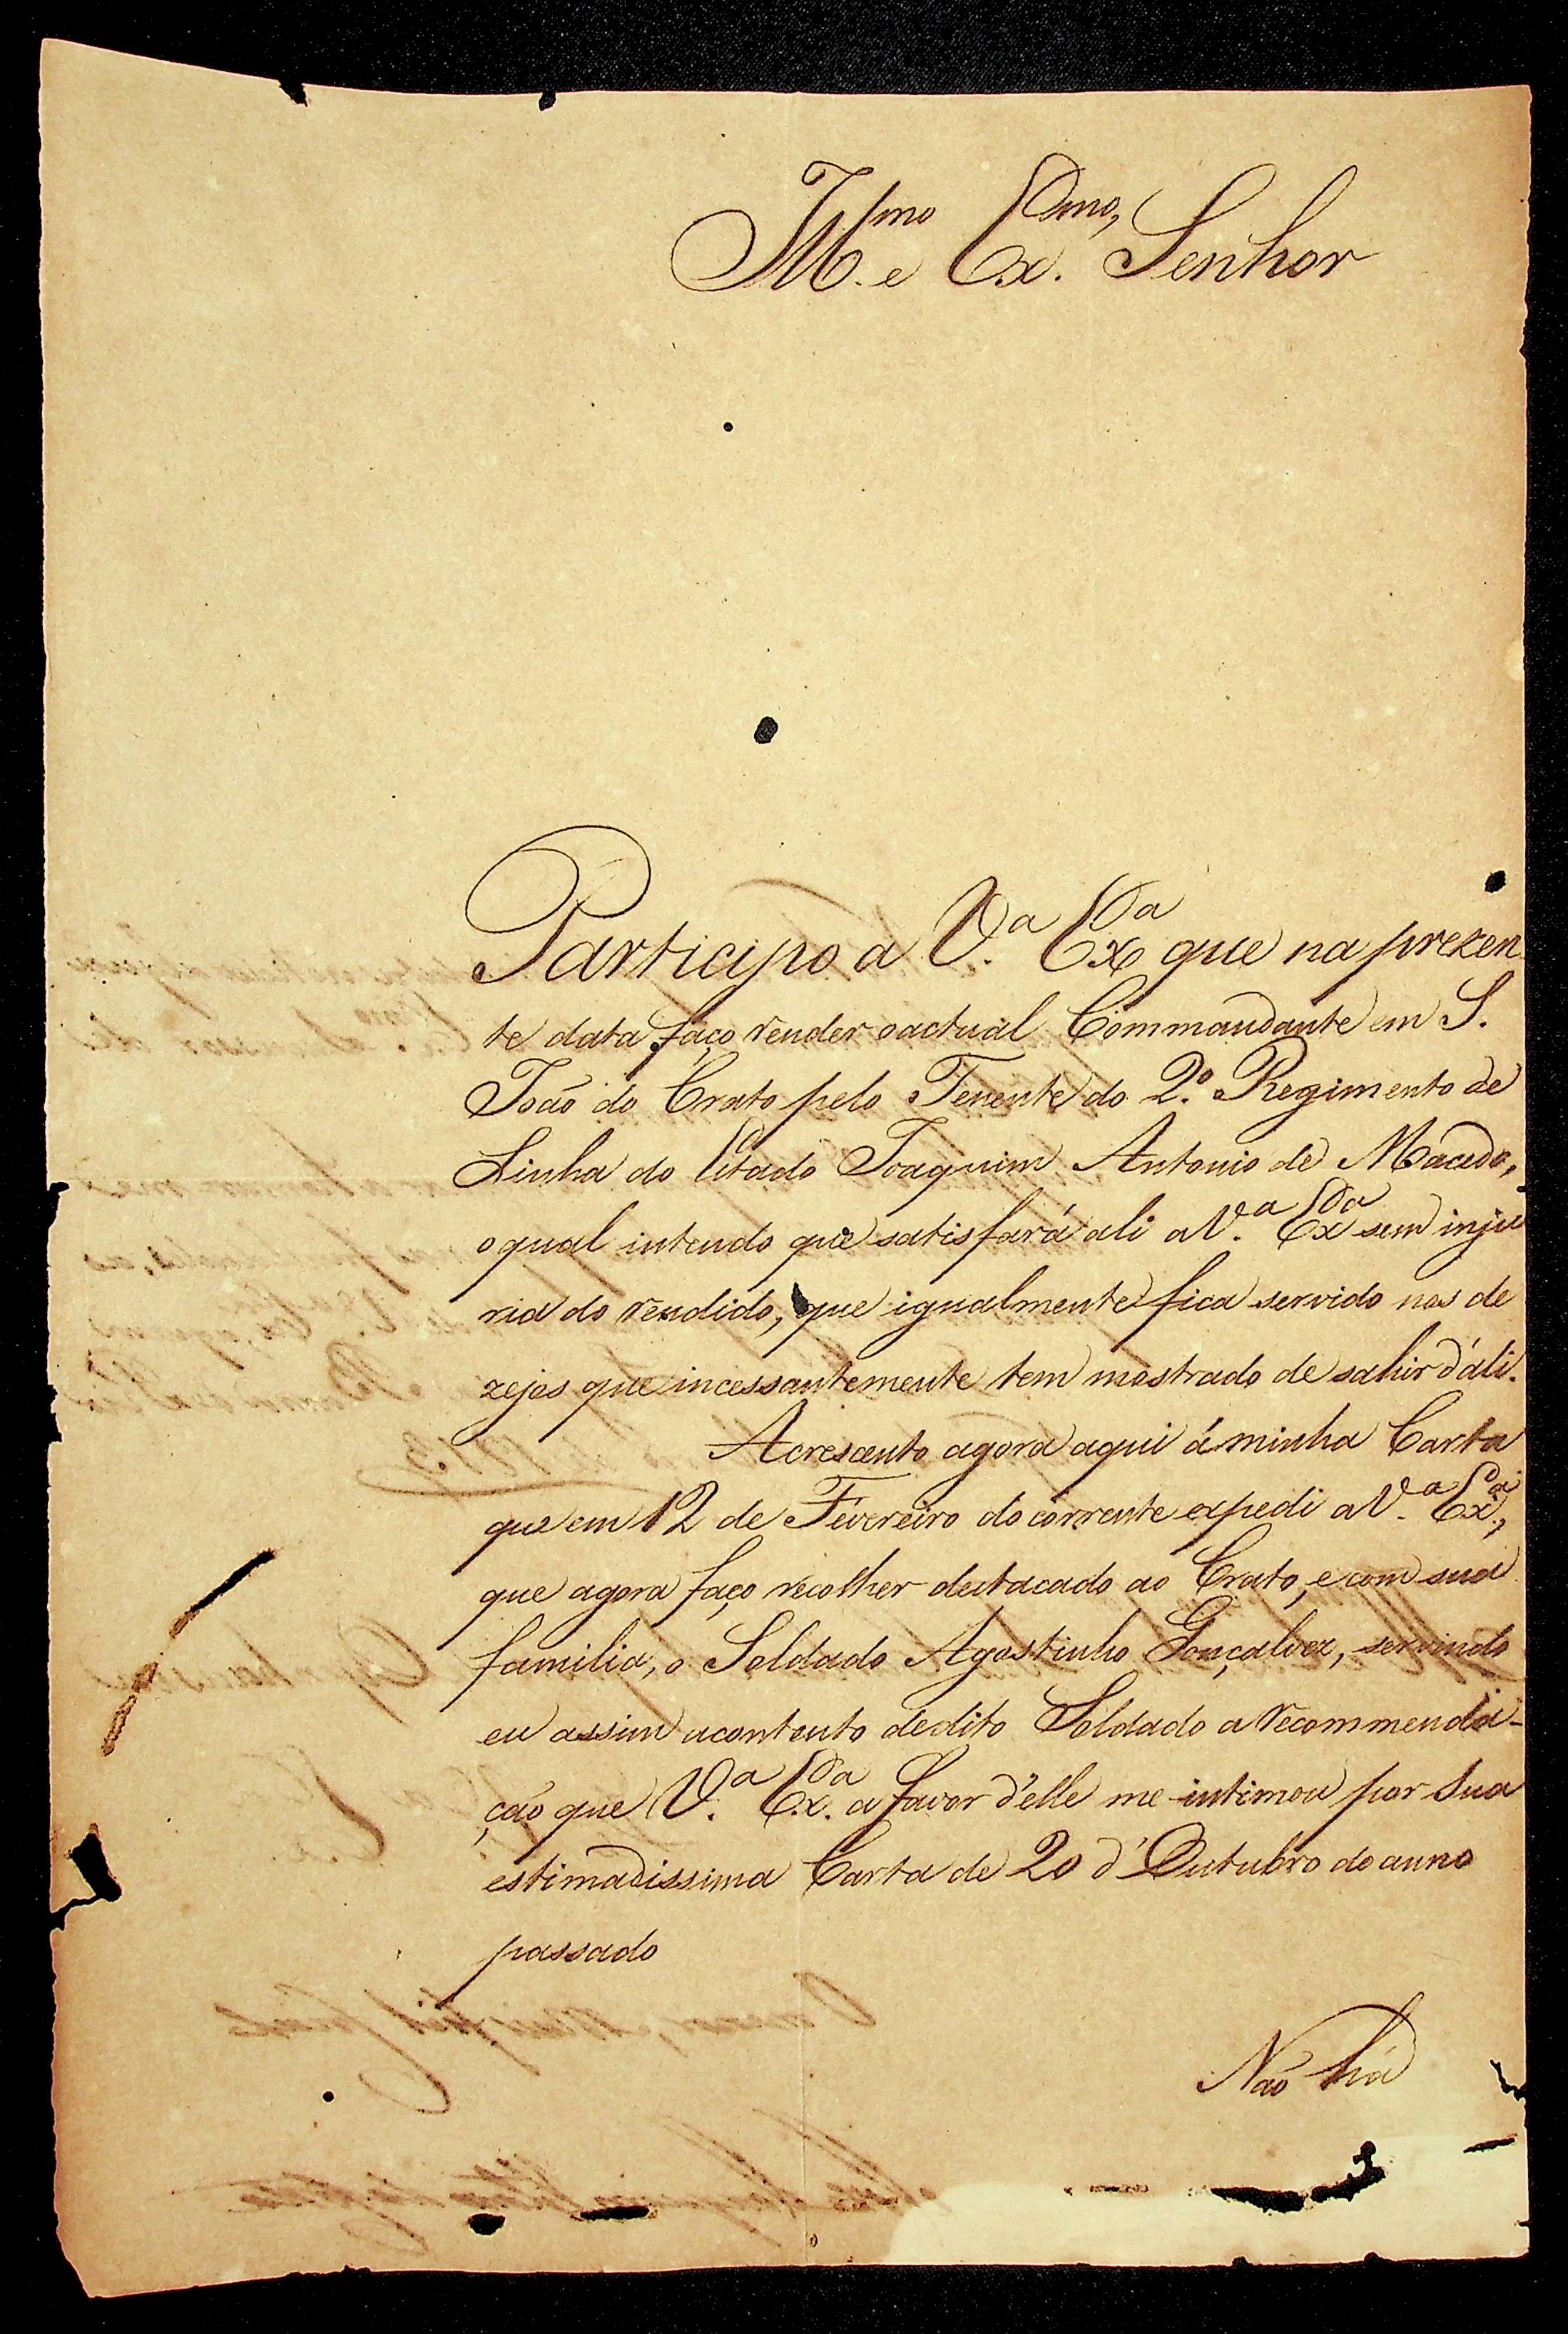 Ill.mo e Ex.mo Senhor
Participo a V.a Ex.a que na prezen
te data faço render o actual Commandante em S.
João do Crato pelo Tenente do 2.º Regimento de
Linha do Estado Joaquim Antonio de Macedo,
o qual intendo que satisfará ali a V.a Ex.a sem inju
ria do rendido, que igualmente fica servido nos de
zejos que incessantemente tem mostrado de sahir d'ali.
Acrescento agora aqui á minha Carta
que em 12 de Fevereiro do corrente expedi a V.a Ex.a,
que agora faço recolher destacado ao Crato, e com sua
familia, o Soldado Agostinho Gonçalvez, servindo
eu assim a contento de dito Soldado a recommenda-
ção que V.a Ex.a a favor d'elle me intimou por Sua
estimadissima Carta de 20 d'Outubro do anno
passado
Não há